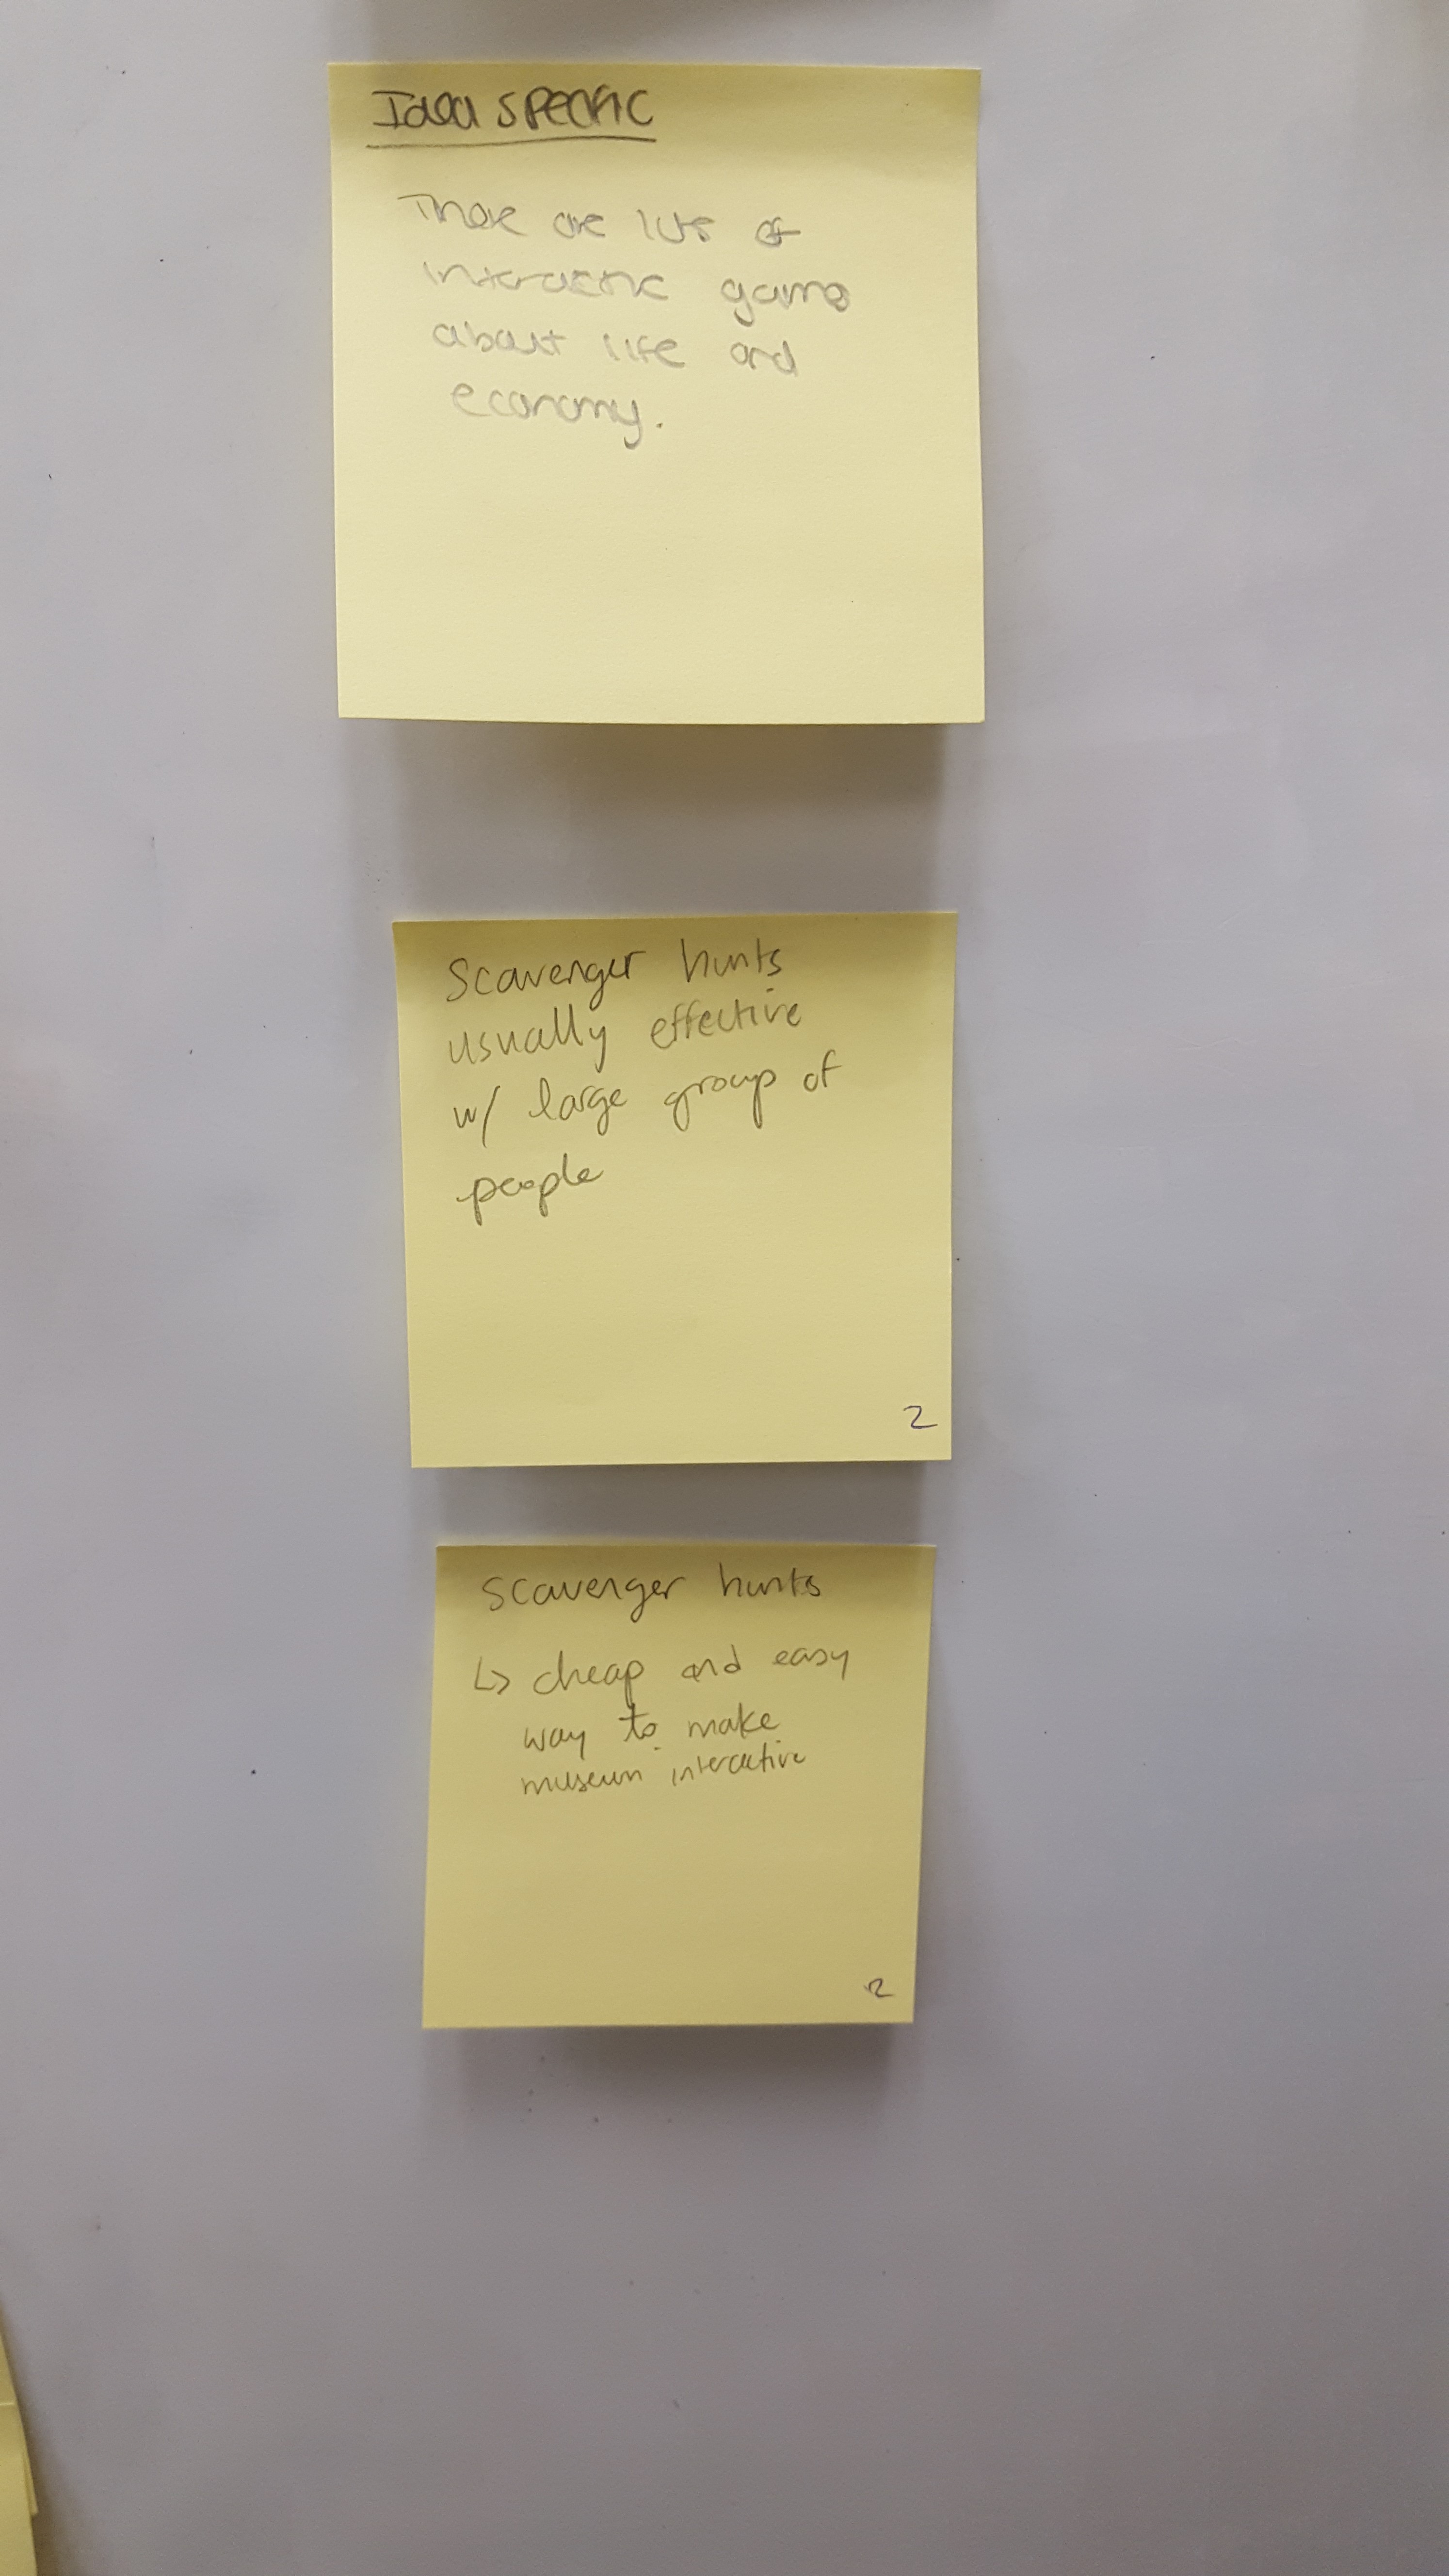 Idea specific
There are lots of
interactive games
about life and
economy.
Scavenger hunts
usually effective
w/ large group of
people
2
scavenger hunts
↳ cheap and easy
way to make
museum interactive
2